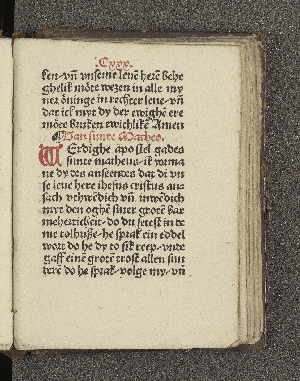 Cxxx.
ken. vn̄ vnseme leuē herē behe
ghelik mōte wezen in alle my
nez ōninge in rechter leue. vn̄
dat ick myt dy der ewighē ere
mōte bruken ewichlikē Amen
Van sunte Matheo.
WErdighe apostel gades
sunte matheus. ik vorma
ne dy des ansēendes dat di vn
se leue here ihesus cristus an
sach vthwēdich vn̄ inwēdich
myt den oghē siner grotē bar
meherticheit. do du setest in de
me tolhuße. he sprak ein eddel
wort do he dy to sik reep. vnde
gaff einē grotē trost allen sun
derē do he sprak. volge my. vn̄